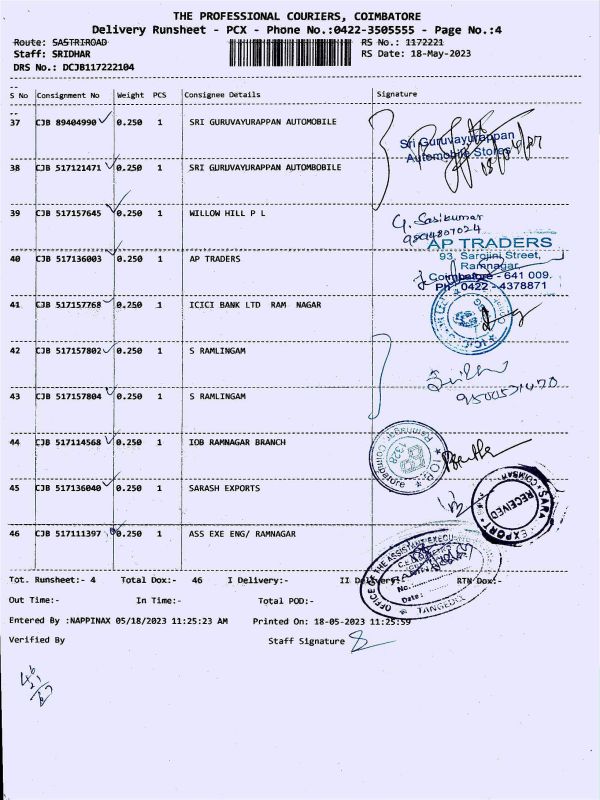 THE PROFESSIONAL COURIERS, COIMBATORE
Delivery Runsheet - PCX - Phone No.:0422-3505555 - Page No.:4
Route: SASTRIROAD RS No.: 1172221
Staff: SRIDHAR RS Date: 18-May-2023
DRS No.: DCJB117222104
S No Consignment No Weight PCS Consignee Details Signature
37 CJB 89404990 0.250 1 SRI GURUVAYURAPPAN AUTOMOBILE
Sri Guruvayurappan
Automobile Stores
38 CJB 517121471 0.250 1 SRI GURUVAYURAPPAN AUTOMBOBILE
39 CJB 517157645 0.250 1 WILLOW HILL P L
G. Sasikumar
9894807024
40 CJB 517136003 0.250 1 AP TRADERS
AP TRADERS
93, Sarojini Street,
Ramnagar,
Coimbatore - 641 009.
Ph : 0422 - 4378871
41 CJB 517157768 0.250 1 ICICI BANK LTD RAM NAGAR
42 CJB 517157802 0.250 1 S RAMLINGAM
43 CJB 517157804 0.250 1 S RAMLINGAM
44 CJB 517114568 0.250 1 IOB RAMNAGAR BRANCH
Ramnagar
1328
Coimbatore
45 CJB 517136040 0.250 1 SARASH EXPORTS
RECEIVED
46 CJB 517111397 0.250 1 ASS EXE ENG/ RAMNAGAR
OFFICE OF THE ASSISTANT EXECU
No.
Date:
TANGEDCO
Tot. Runsheet:- 4 Total Dox:- 46 I Delivery:- II Delivery:- RTN Dox:-
Out Time:- In Time:- Total POD:-
Entered By :NAPPINAX 05/18/2023 11:25:23 AM Printed On: 18-05-2023 11:25:59
Verified By Staff Signature